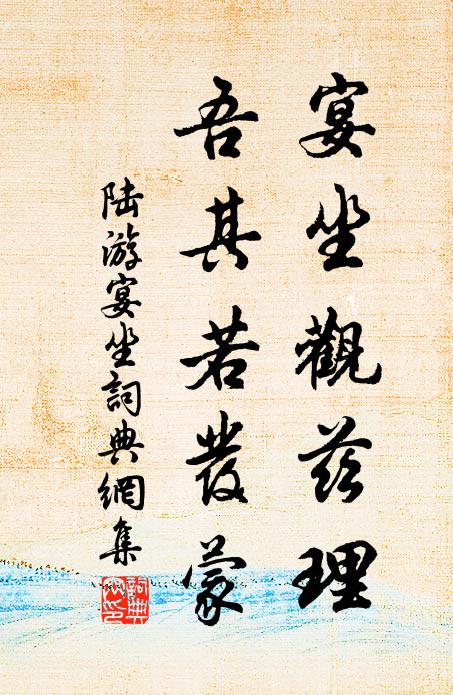 宴坐觀茲理
吾其若發蒙
陆游宴坐詞典網集